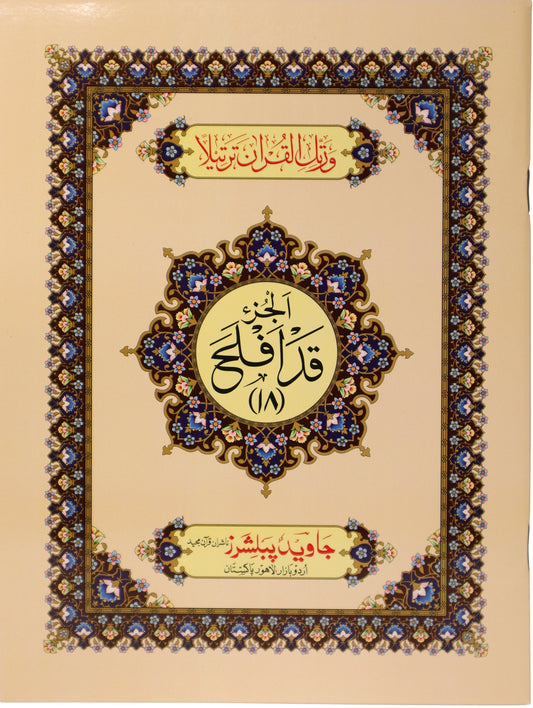 ورتل القرآن ترتيلا
الجزء
قد افلح
(١٨)
جاوید پبلشرز ناشران قرآن مجید
اردو بازار لاهور پاکستان